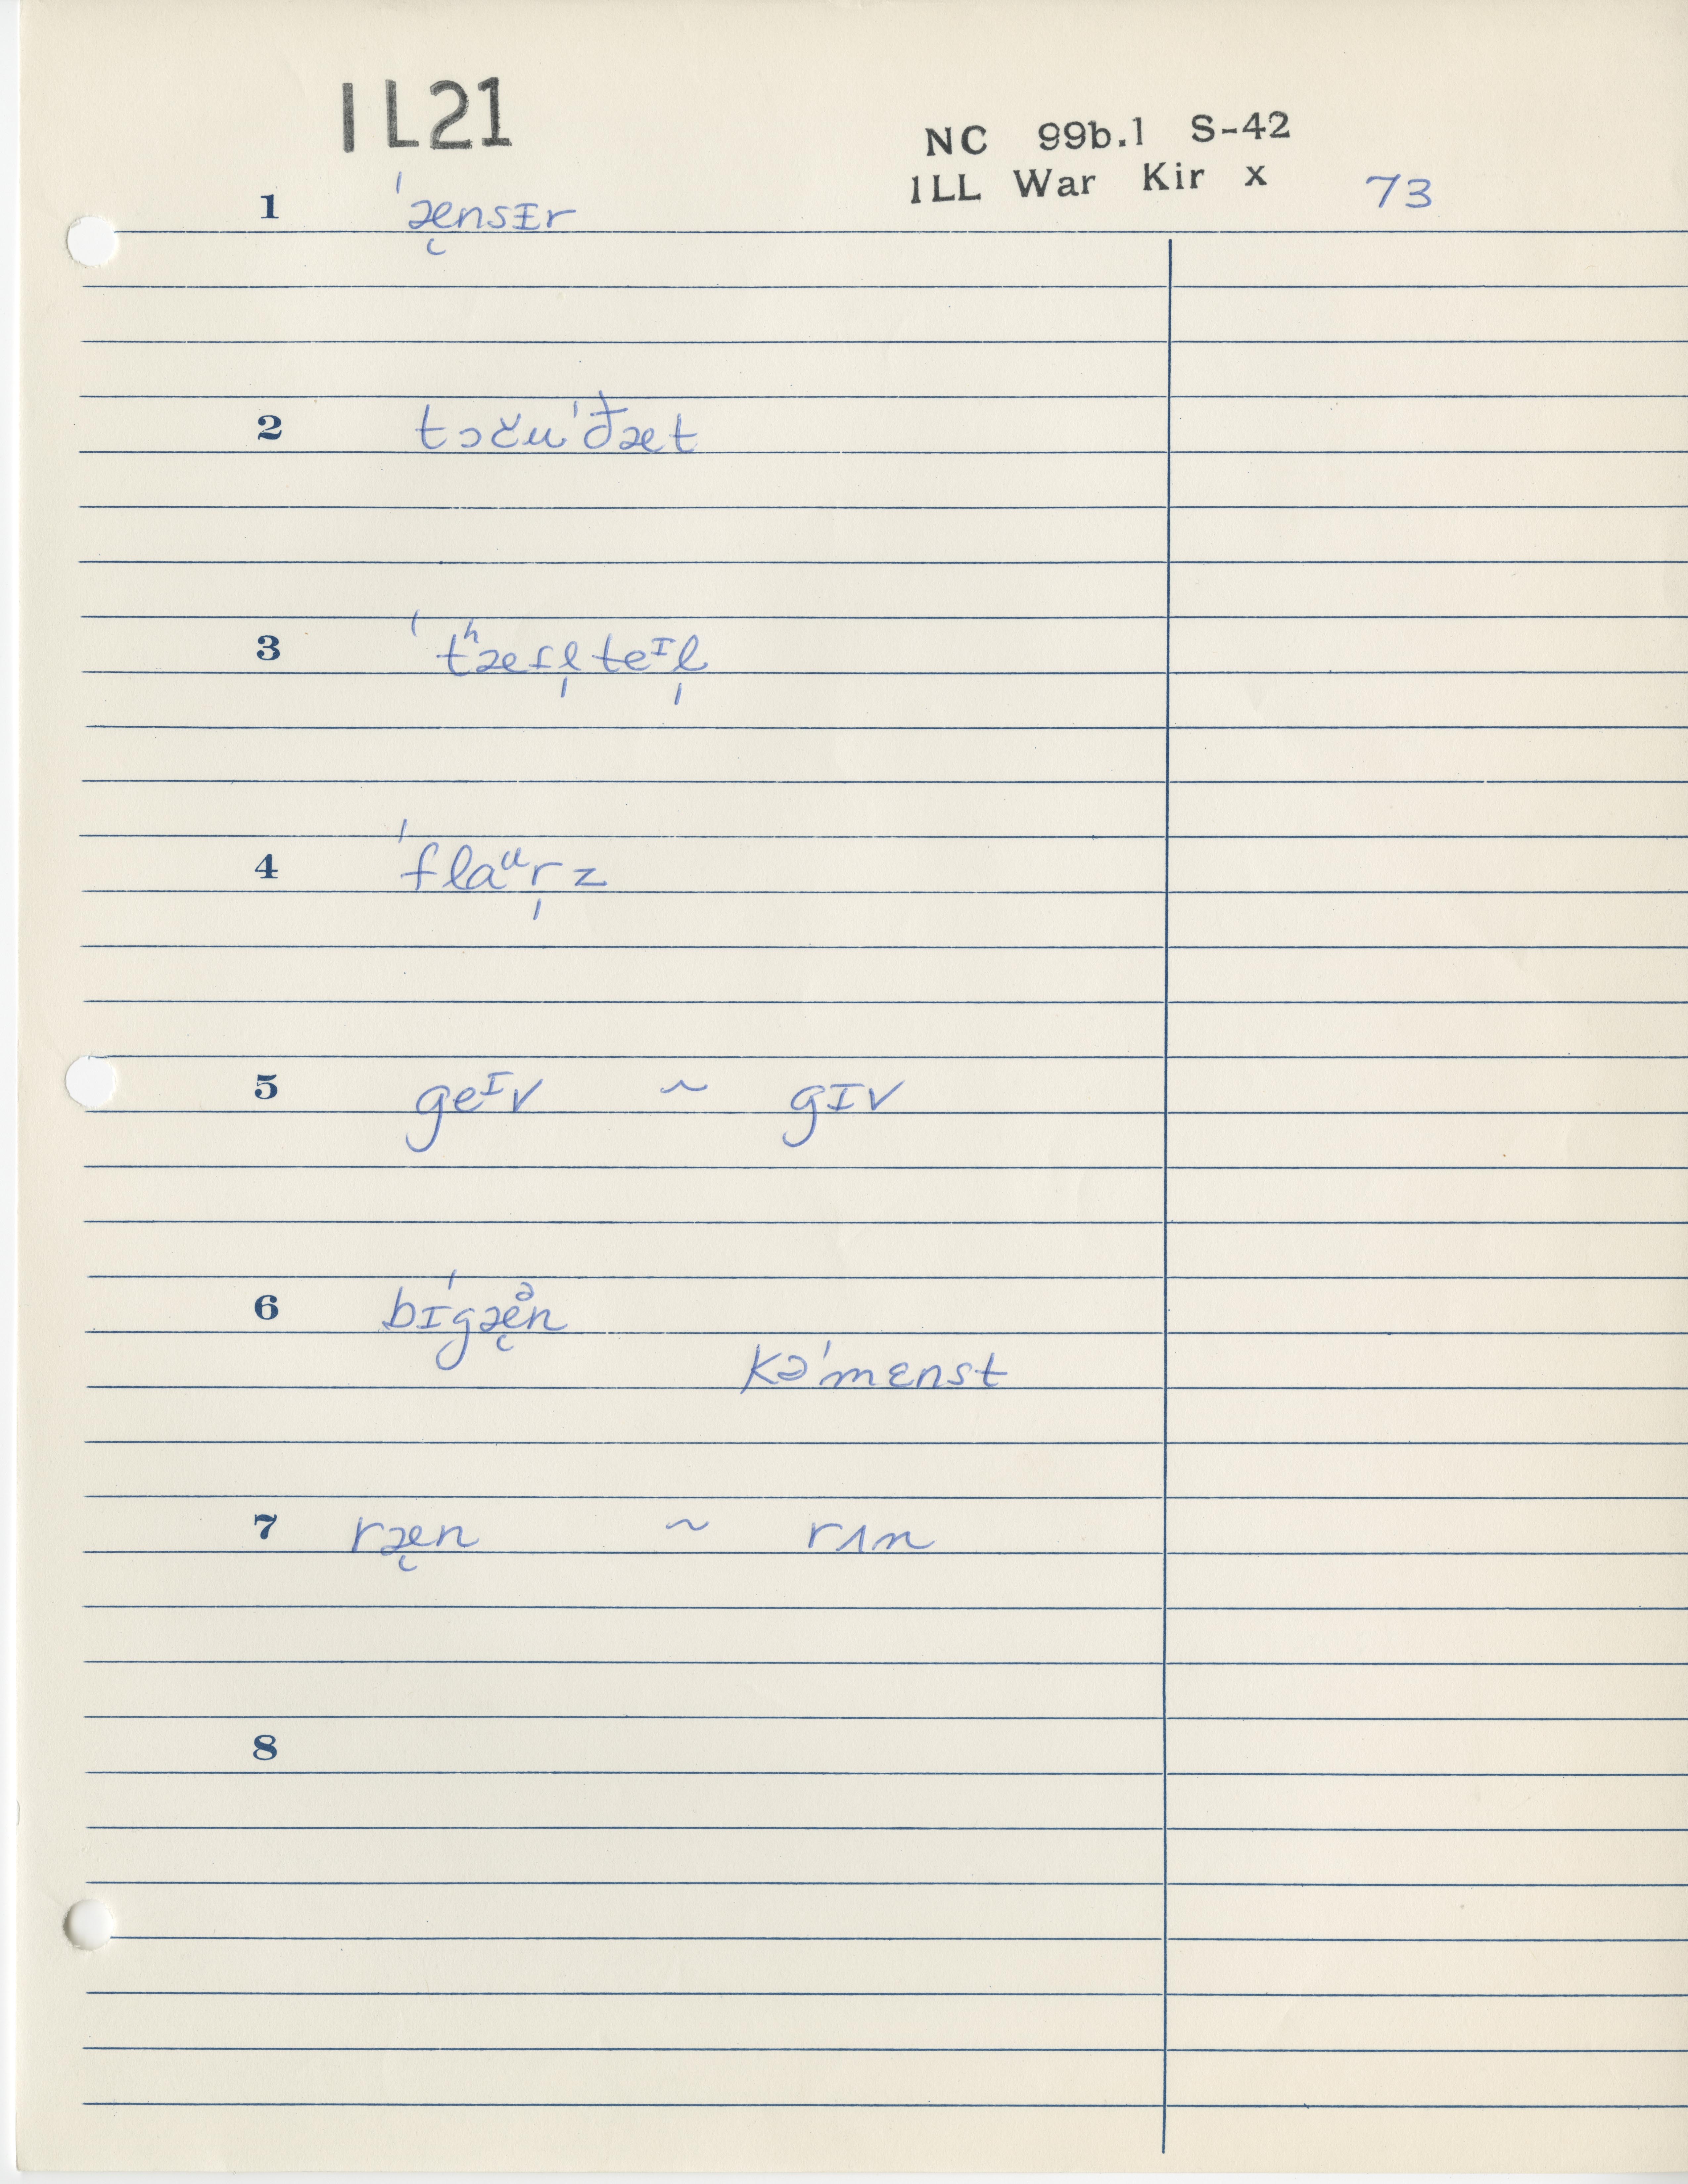 1L21
NC 99b.1 S-42
1LL War Kir x 73
1 ˈæ̜nsɪr
2 tɔču ˈđæt
3 ˈtʰæfl̩teᴵl̩
4 ˈflaᵘr̩z
5 geᴵv ~ gɪv
6 bɪˈgæ̜ᵊn
kəˈmɛnst
7 ræ̜n ~ rʌn
8